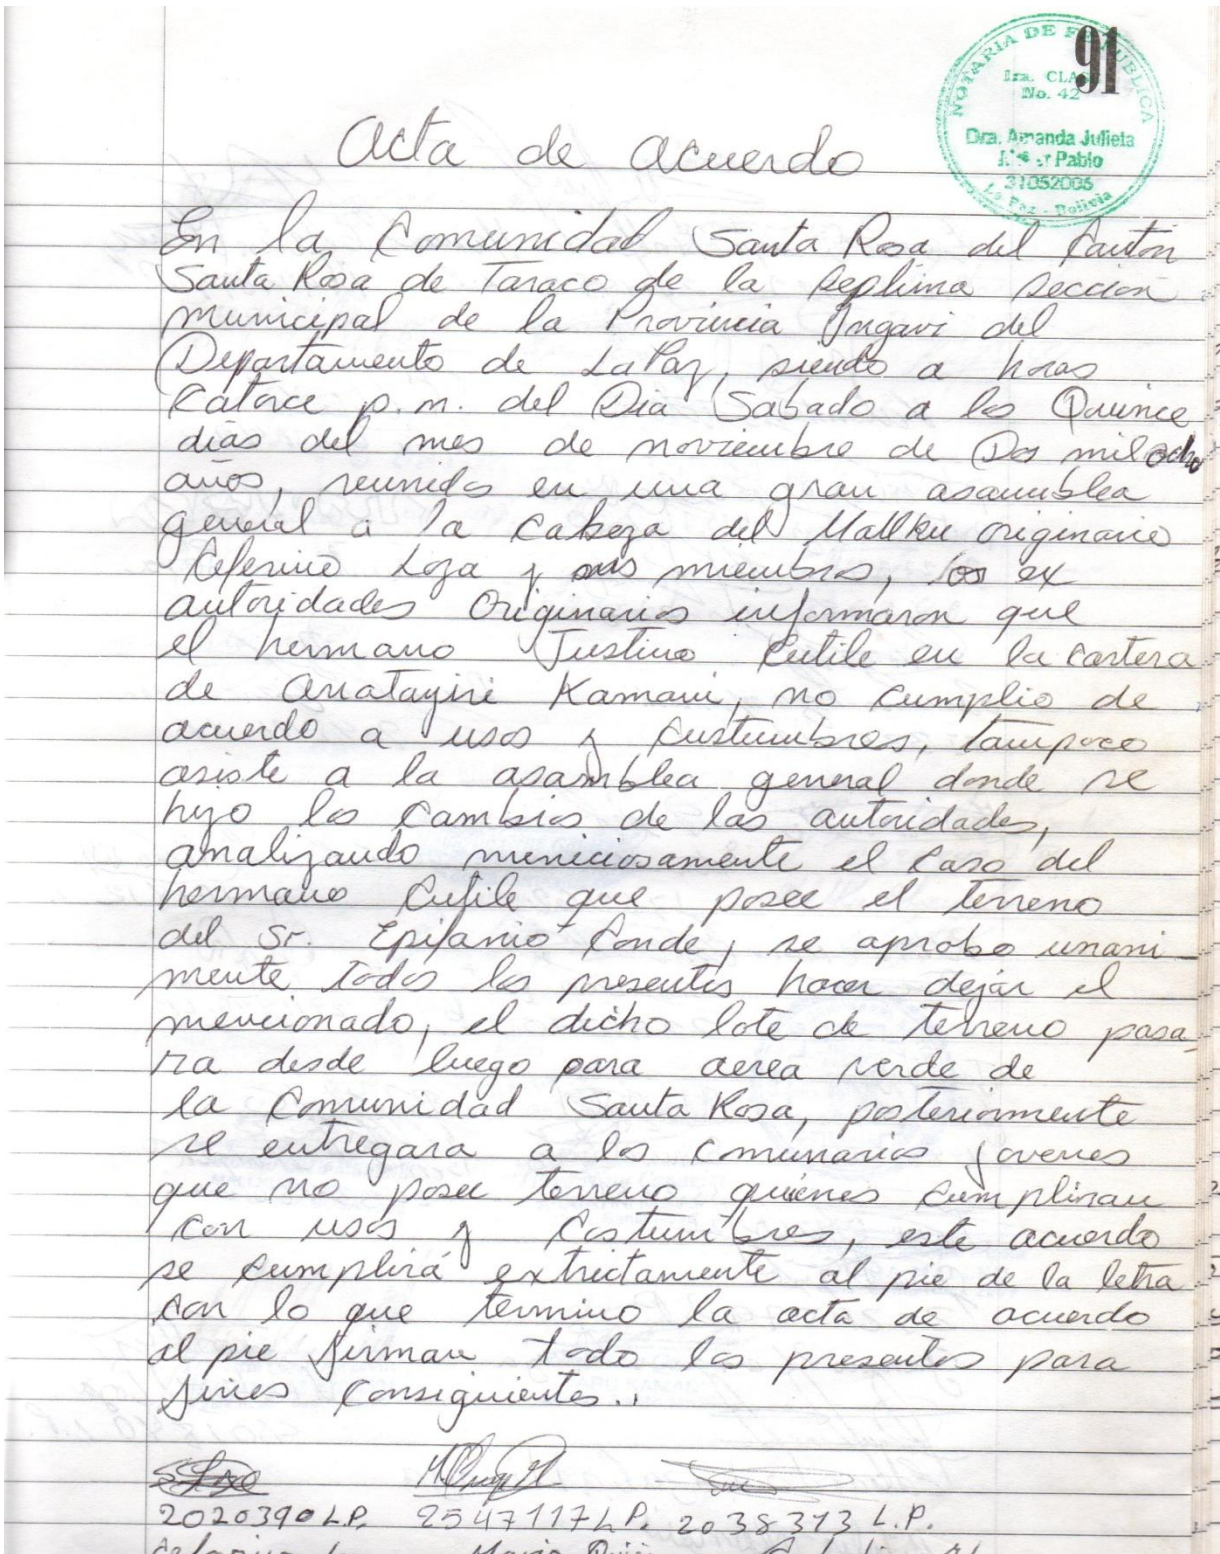 91
NOTARIA DE FE PUBLICA
1ra. CLASE
No. 42
Dra. Amanda Julieta
Pablo
31052005
La Paz - Bolivia
Acta de acuerdo
En la Comunidad Santa Rosa del Canton
Santa Rosa de Taraco de la Septima Seccion
municipal de la Provincia Ingavi del
Departamento de La Paz, siendo a horas
Catorce p.m. del Dia Sabado a los Quince
dias del mes de noviembre de Dos mil ocho
años, reunidos en una gran asamblea
general a la Cabeza del Mallku originario
Ceferino Loza y sus miembros, los ex
autoridades Originarios informaron que
el hermano Justino Cutile en la Cartera
de Anatayiri Kamani, no Cumplio de
acuerdo a usos y Custumbres, tampoco
asiste a la asamblea general donde se
hizo los Cambios de las autoridades,
analizando meniciosamente el Caso del
hermano Cutile que posee el terreno
del Sr. Epifanio Conde, se aprobo unani
mente todos los presentes hacer dejar el
mencionado, el dicho lote de terreno pasa-
ra desde luego para aerea verde de
la Comunidad Santa Rosa, posteriormente
se entregara a los Comunarios jovenes
que no posee terreno quienes Cumpliran
con usos y Costumbres, este acuerdo
se Cumplirá extrictamente al pie de la letra
con lo que termino la acta de acuerdo
al pie firman todo los presentes para
fines Consiguientes..
2020390 L.P. 2547117 L.P. 2038313 L.P.
Mario